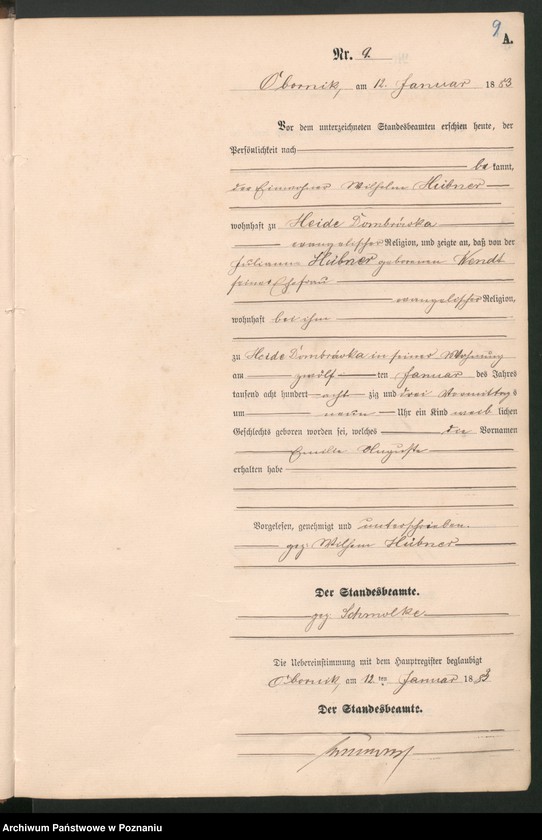 9
A.
Nr. 9.
Obornik, am 12. Januar 1883
Vor dem unterzeichneten Standesbeamten erschien heute, der
Persönlichkeit nach
bekannt,
der Einwohner Wilhelm Hübner
wohnhaft zu Heide Dombrówka
evangelischer Religion, und zeigte an, daß von der
Julianna Hübner geborenen Wendt
seiner Ehefrau
evangelischer Religion,
wohnhaft bei ihm
zu Heide Dombrówka in seiner Wohnung
am zwölften Januar des Jahres
tausend acht hundert achtzig und drei Vormittags
um neun Uhr ein Kind weiblichen
Geschlechts geboren worden sei, welches die Vornamen
Emilie Auguste
erhalten habe
Vorgelesen, genehmigt und unterschrieben.
gez. Wilhelm Hübner
Der Standesbeamte.
gez. Schmolke
Die Uebereinstimmung mit dem Hauptregister beglaubigt
Obornik, am 12ten Januar 1883
Der Standesbeamte.
Archiwum Państwowe w Poznaniu